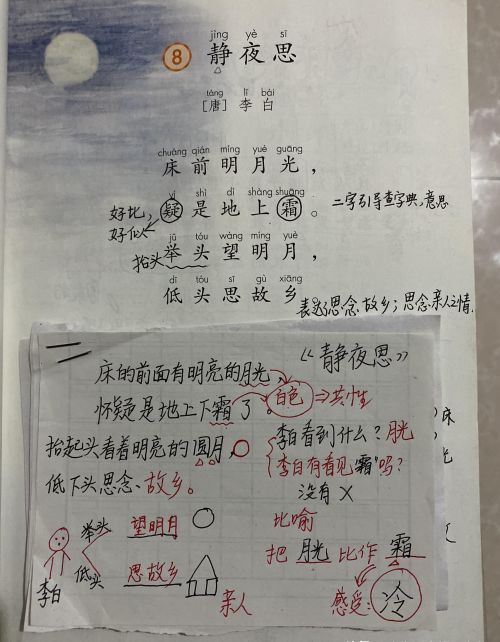 jìng yè sī
8 静夜思
táng lǐ bái
[唐] 李白
chuáng qián míng yuè guāng
床前明月光，
yí shì dì shàng shuāng
疑是地上霜。
好比，
好似
二字引导查字典，意思
jǔ tóu wàng míng yuè
抬头 举头望明月，
dī tóu sī gù xiāng
低头思故乡
表达思念故乡；思念亲人之情
《静夜思》
床的前面有明亮的月光，
怀疑是地上下霜了。
白色 ⇒ 共性
抬起头看着明亮的圆月，
低下头思念、故乡。
李白看到什么？月光
李白有看见“霜”吗？
没有 ×
比喻
把 月光 比作 霜
感受：冷
举头 望明月
低头 思故乡
李白
亲人
床
光